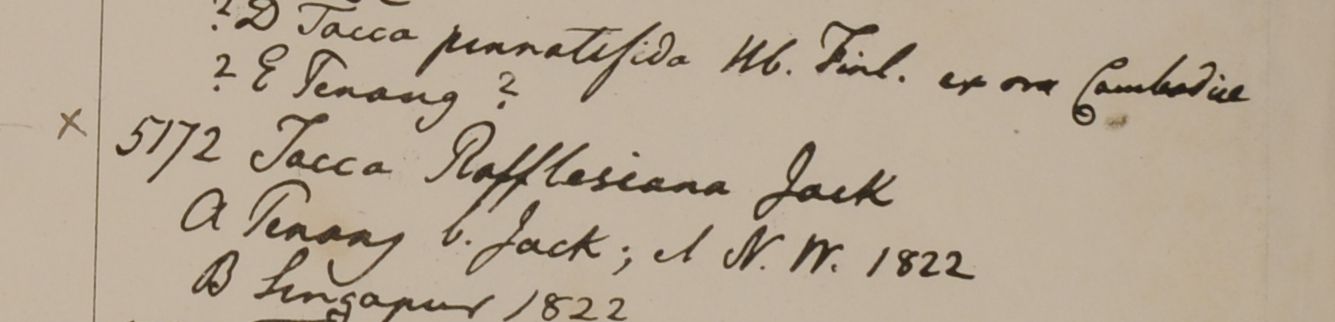 ? D Tacca pinnatifida Hb. Finl. ex ora Cambodiæ
? E Penang ?
× 5172 Tacca Rafflesiana Jack
A Penang b. Jack; et N. W. 1822
B Singapur 1822